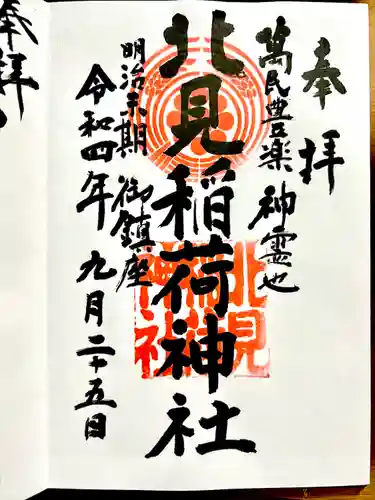 奉拝
萬民豊楽 神霊也
北見稲荷神社
明治末期 御鎮座
令和四年 九月二十五日
北見
稲荷
神社
奉拝